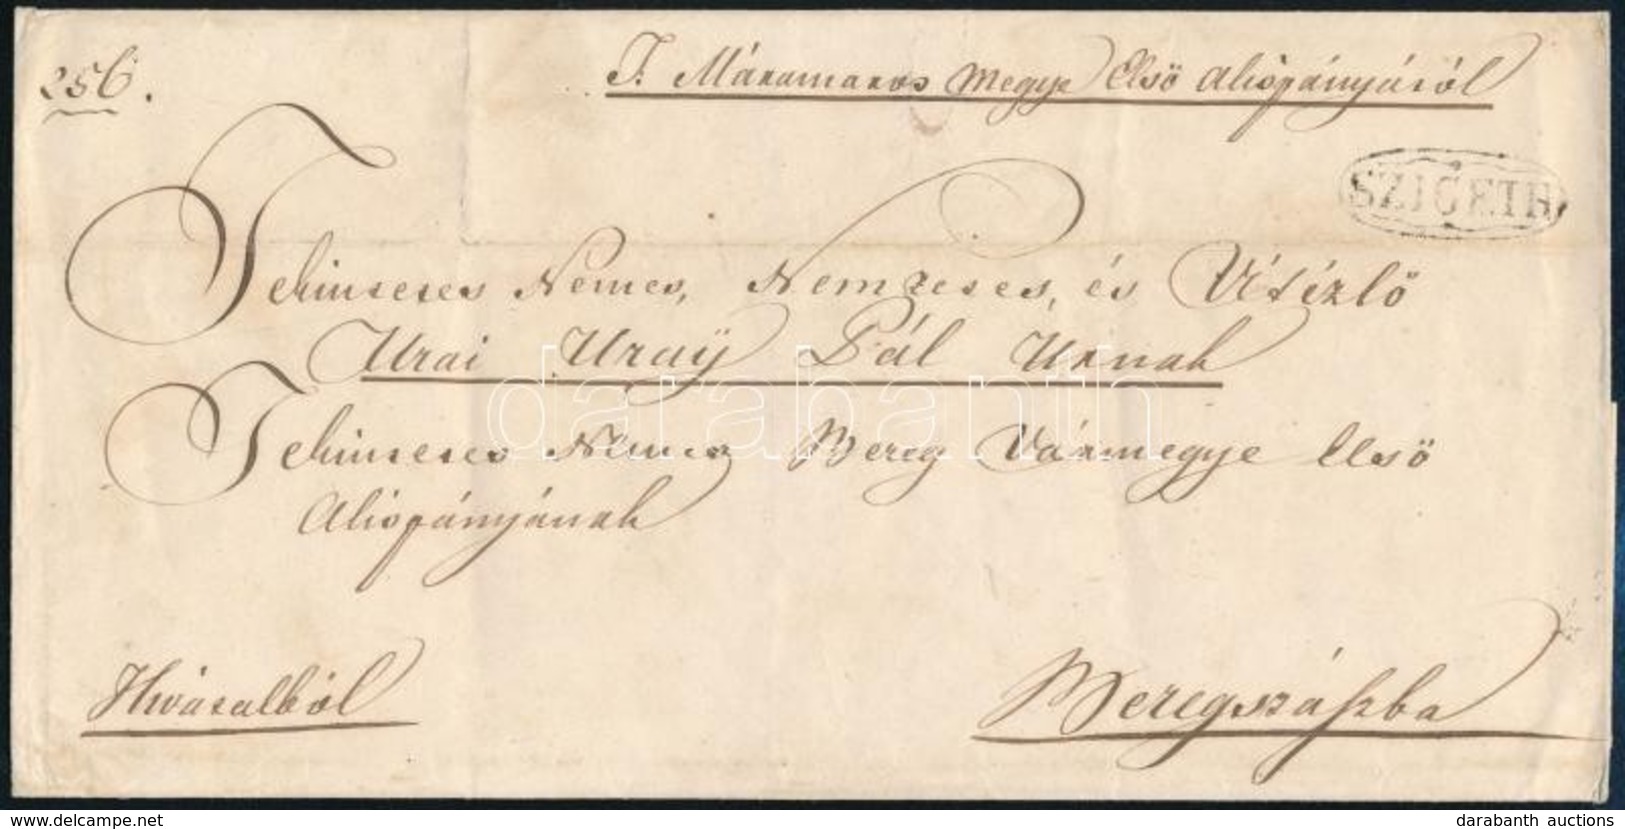 256.
T. Máramaros Megye Első Alispányától
SZIGETH
Tekintetes Nemes, Nemzetes, és Vitézlő
Urai Uraÿ Pál Urnak
Tekintetes Nemes Bereg Vármegye Első
Alispányjának
Hivatalból
Beregszászba
darabanth
www.delcampe.net
darabanth auctions